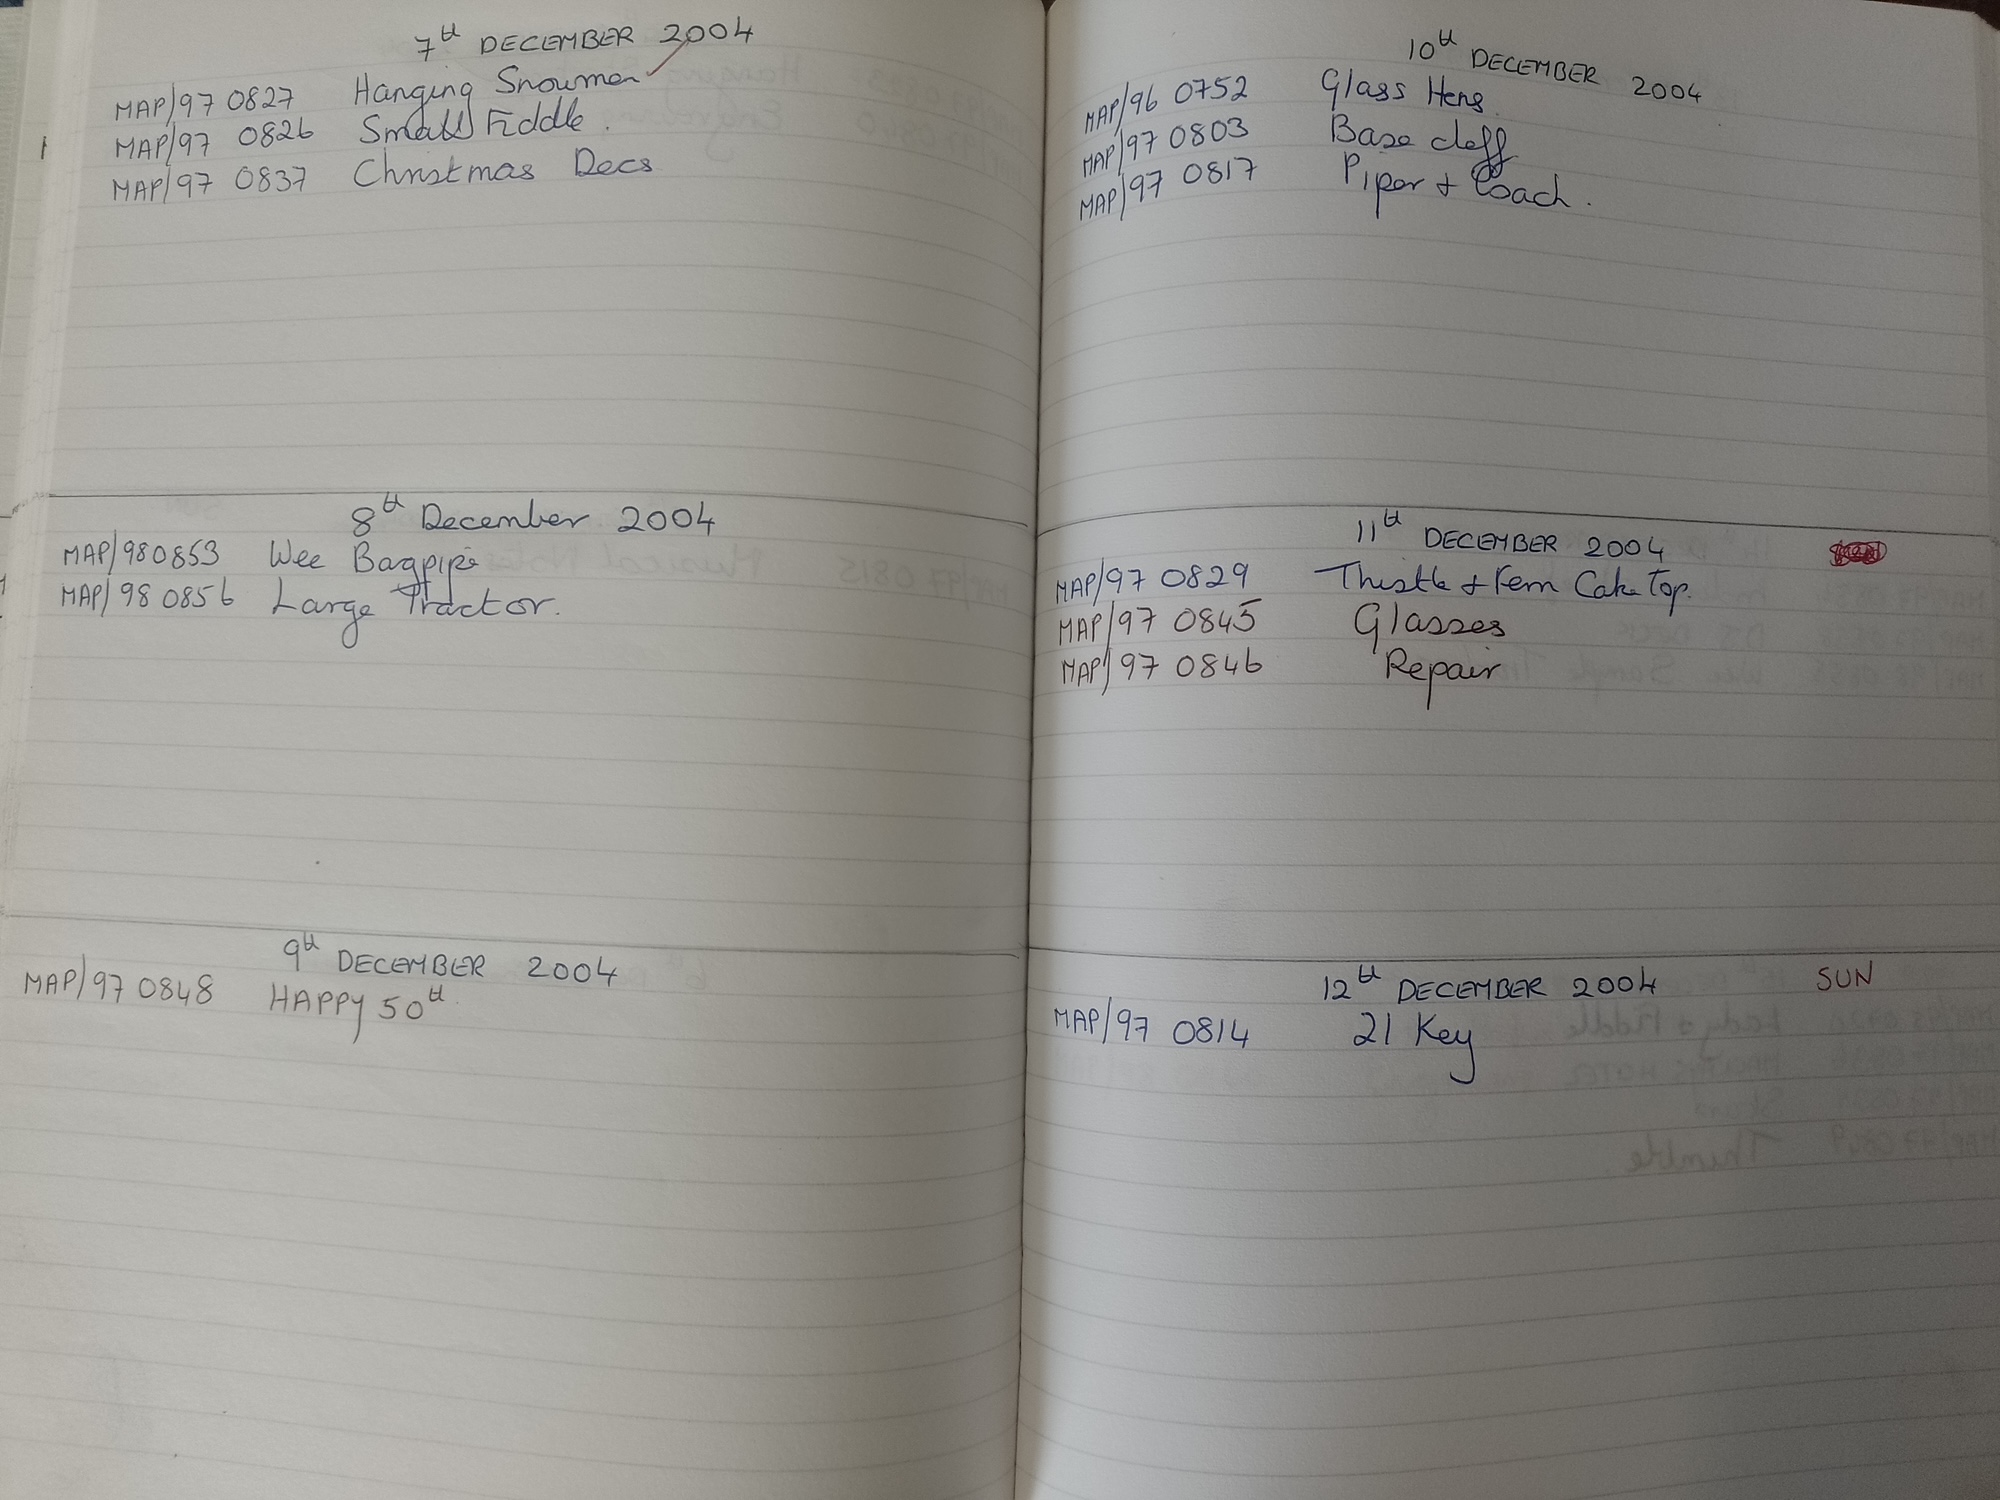 7th DECEMBER 2004
MAP/97 0827 Hanging Snowman
MAP/97 0826 Small Fiddle.
MAP/97 0837 Christmas Decs
8th December 2004
MAP/980853 Wee Bagpipe
MAP/98 0856 Large Tractor.
9th DECEMBER 2004
MAP/97 0848 HAPPY 50th
10th DECEMBER 2004
MAP/96 0752 Glass Hens.
MAP/97 0803 Base cleff
MAP/97 0817 Piper + Coach.
11th DECEMBER 2004
MAP/97 0829 Thistle + Fern Cake Top.
MAP/97 0845 Glasses
MAP/97 0846 Repair
12th DECEMBER 2004 SUN
MAP/97 0814 21 Key